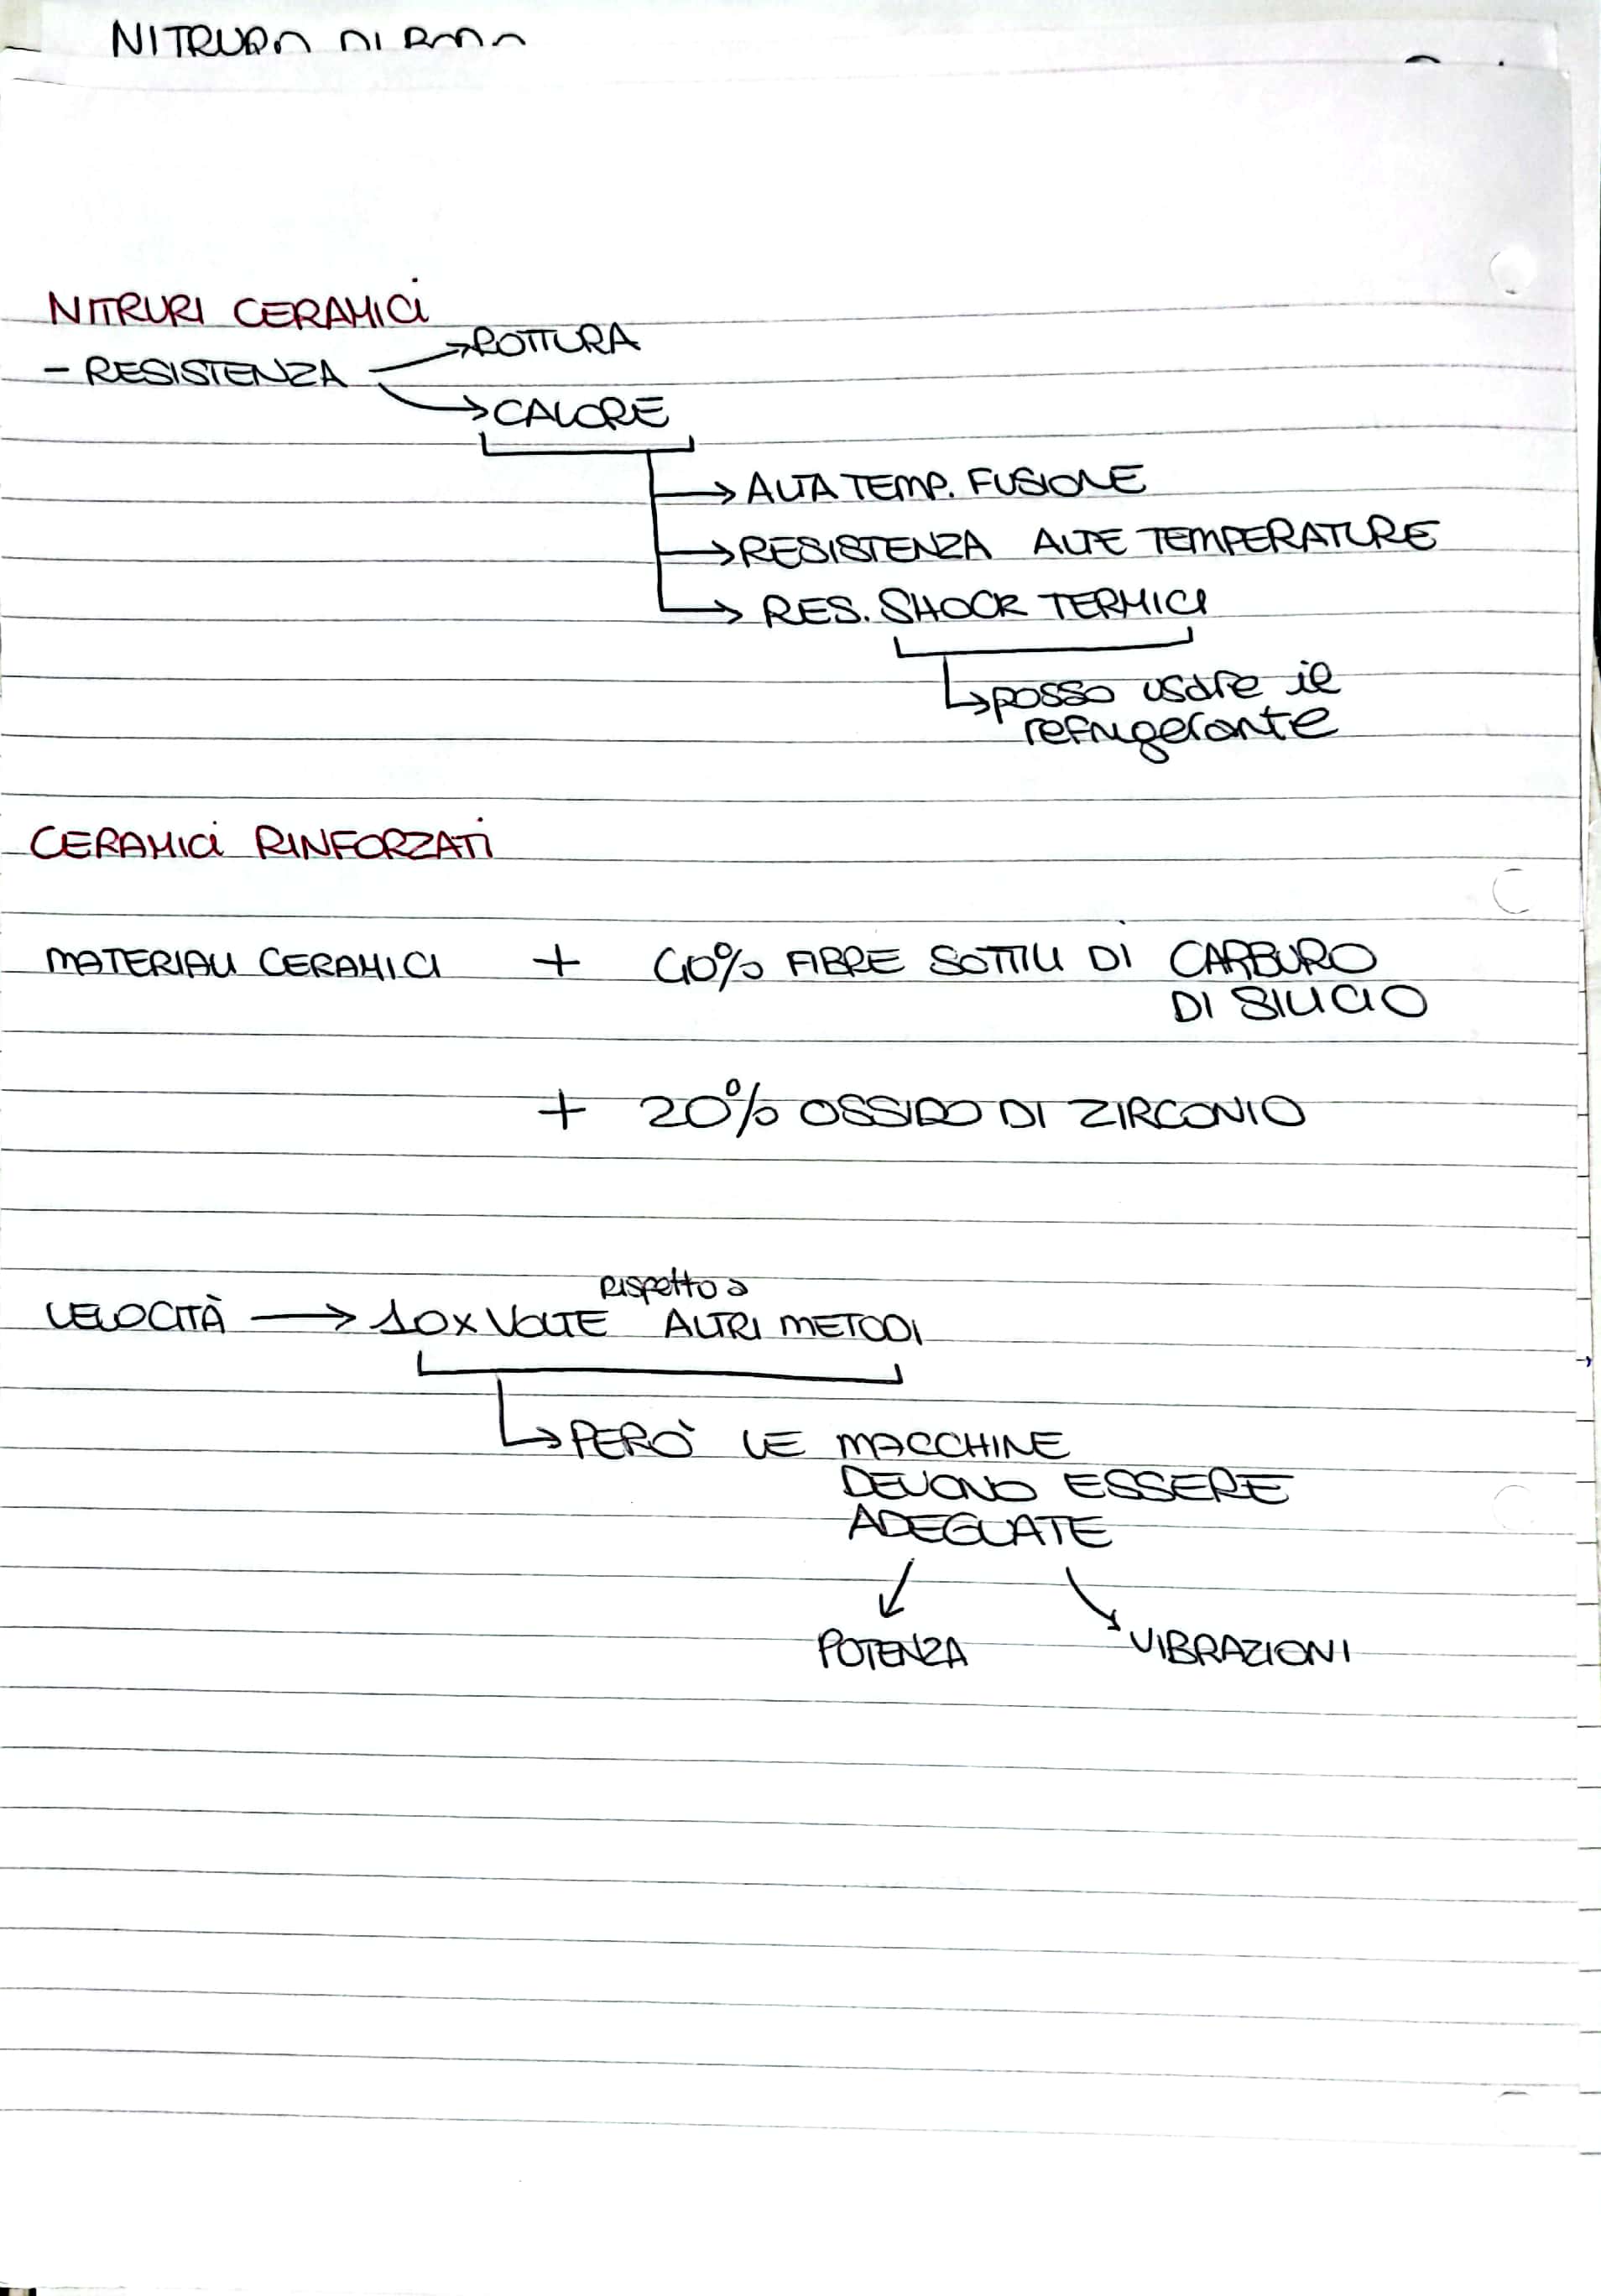 NITRURI CERAMICI
- RESISTENZA → ROTTURA
→ CALORE
→ ALTA TEMP. FUSIONE
→ RESISTENZA ALTE TEMPERATURE
→ RES. SHOCK TERMICI
→ posso usare il
refrigerante
CERAMICI RINFORZATI
MATERIALI CERAMICI + 40% FIBRE SOTTILI DI CARBURO
DI SILICIO
+ 20% OSSIDO DI ZIRCONIO
rispetto a
VELOCITÀ → 10x VOLTE ALTRI METODI
→ PERÒ LE MACCHINE
DEVONO ESSERE
ADEGUATE
POTENZA VIBRAZIONI